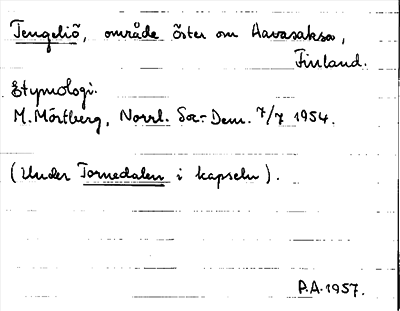 Tengeliö, område öster om Aavasaksa,
Finland.
Etymologi.
M. Mörtberg, Norrl. Soc-Dem. 7/7 1954.
(Under Tornedalen i kapseln).
P.A. 1957.